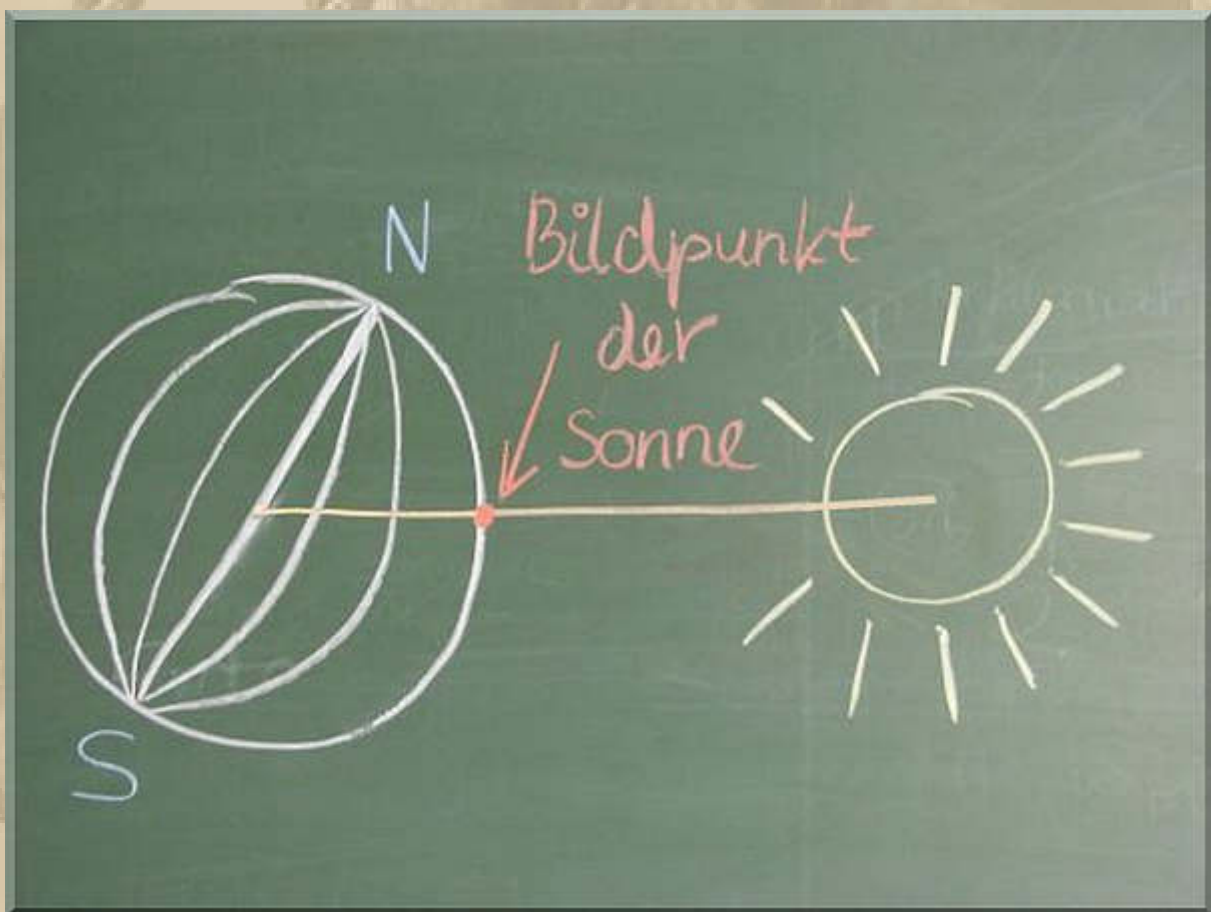 N
Bildpunkt
der
Sonne
S